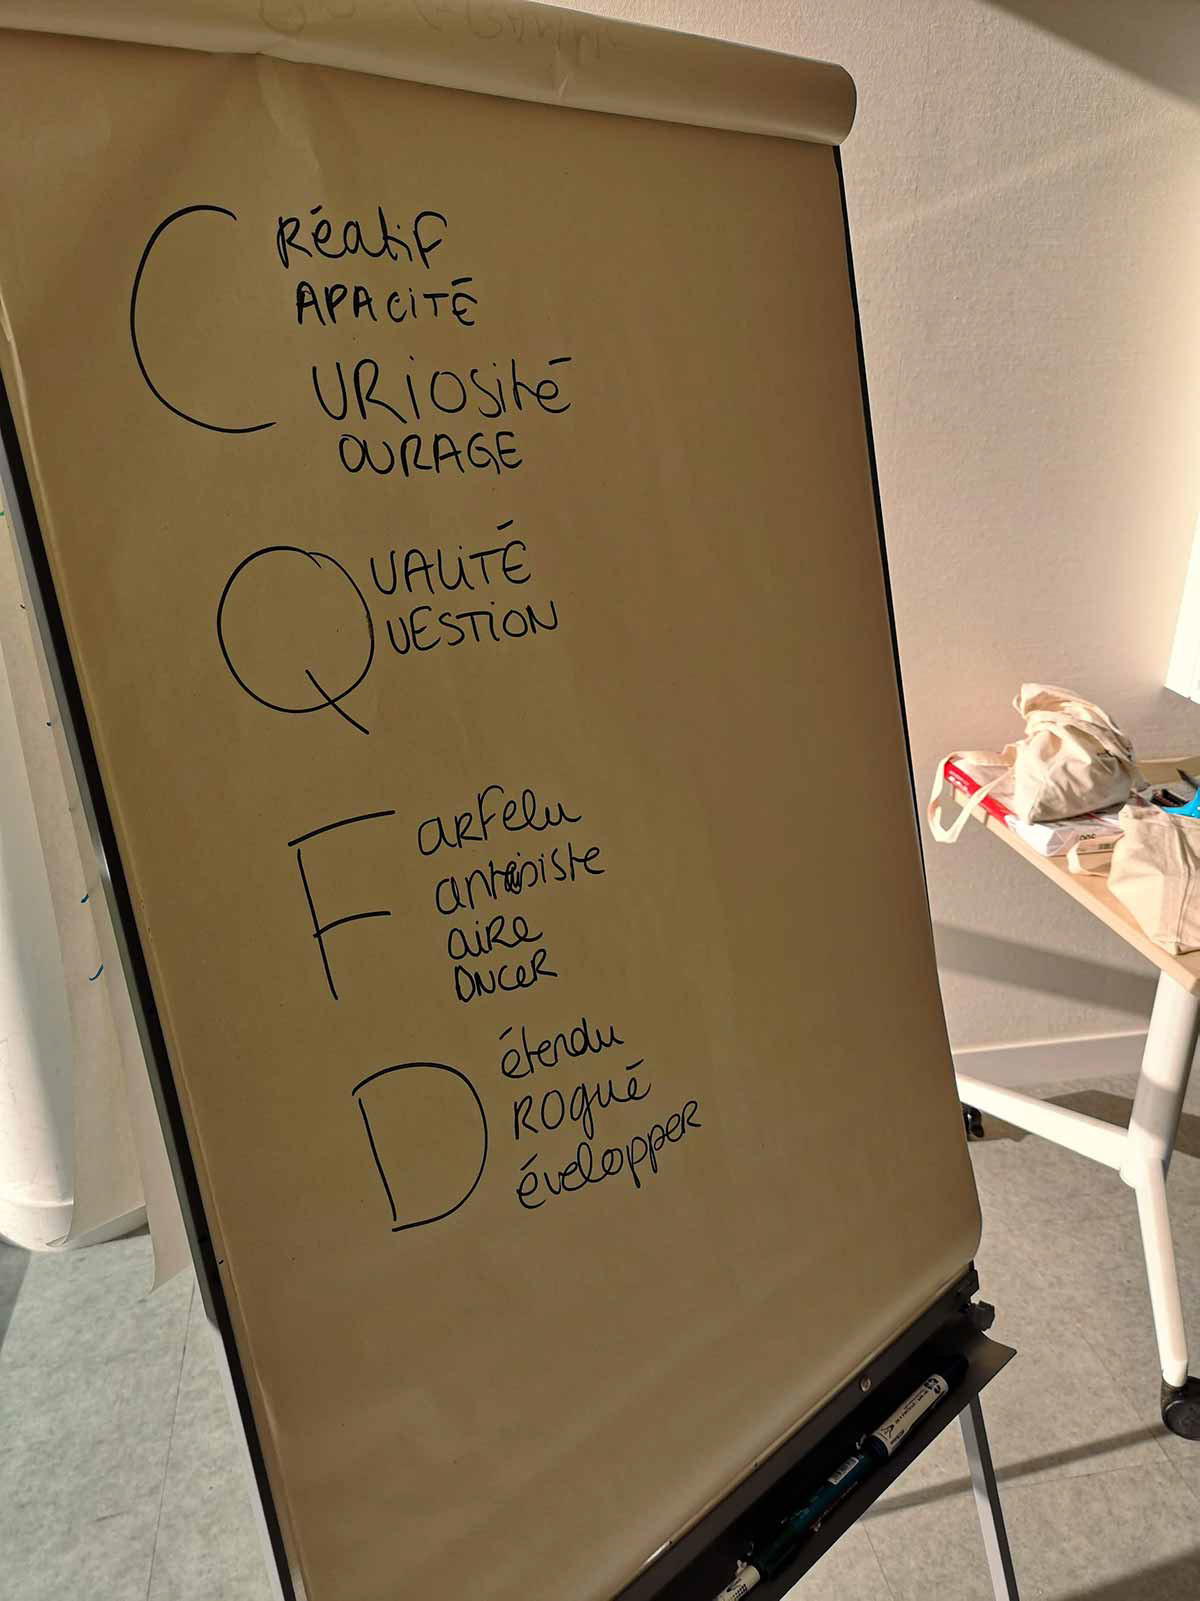 C Réatif
APACITÉ
URiOSité
OURAGE
Q UALITÉ
UESTION
F arfelu
aire
ONCER
D étendu
ROGUÉ
évelopper